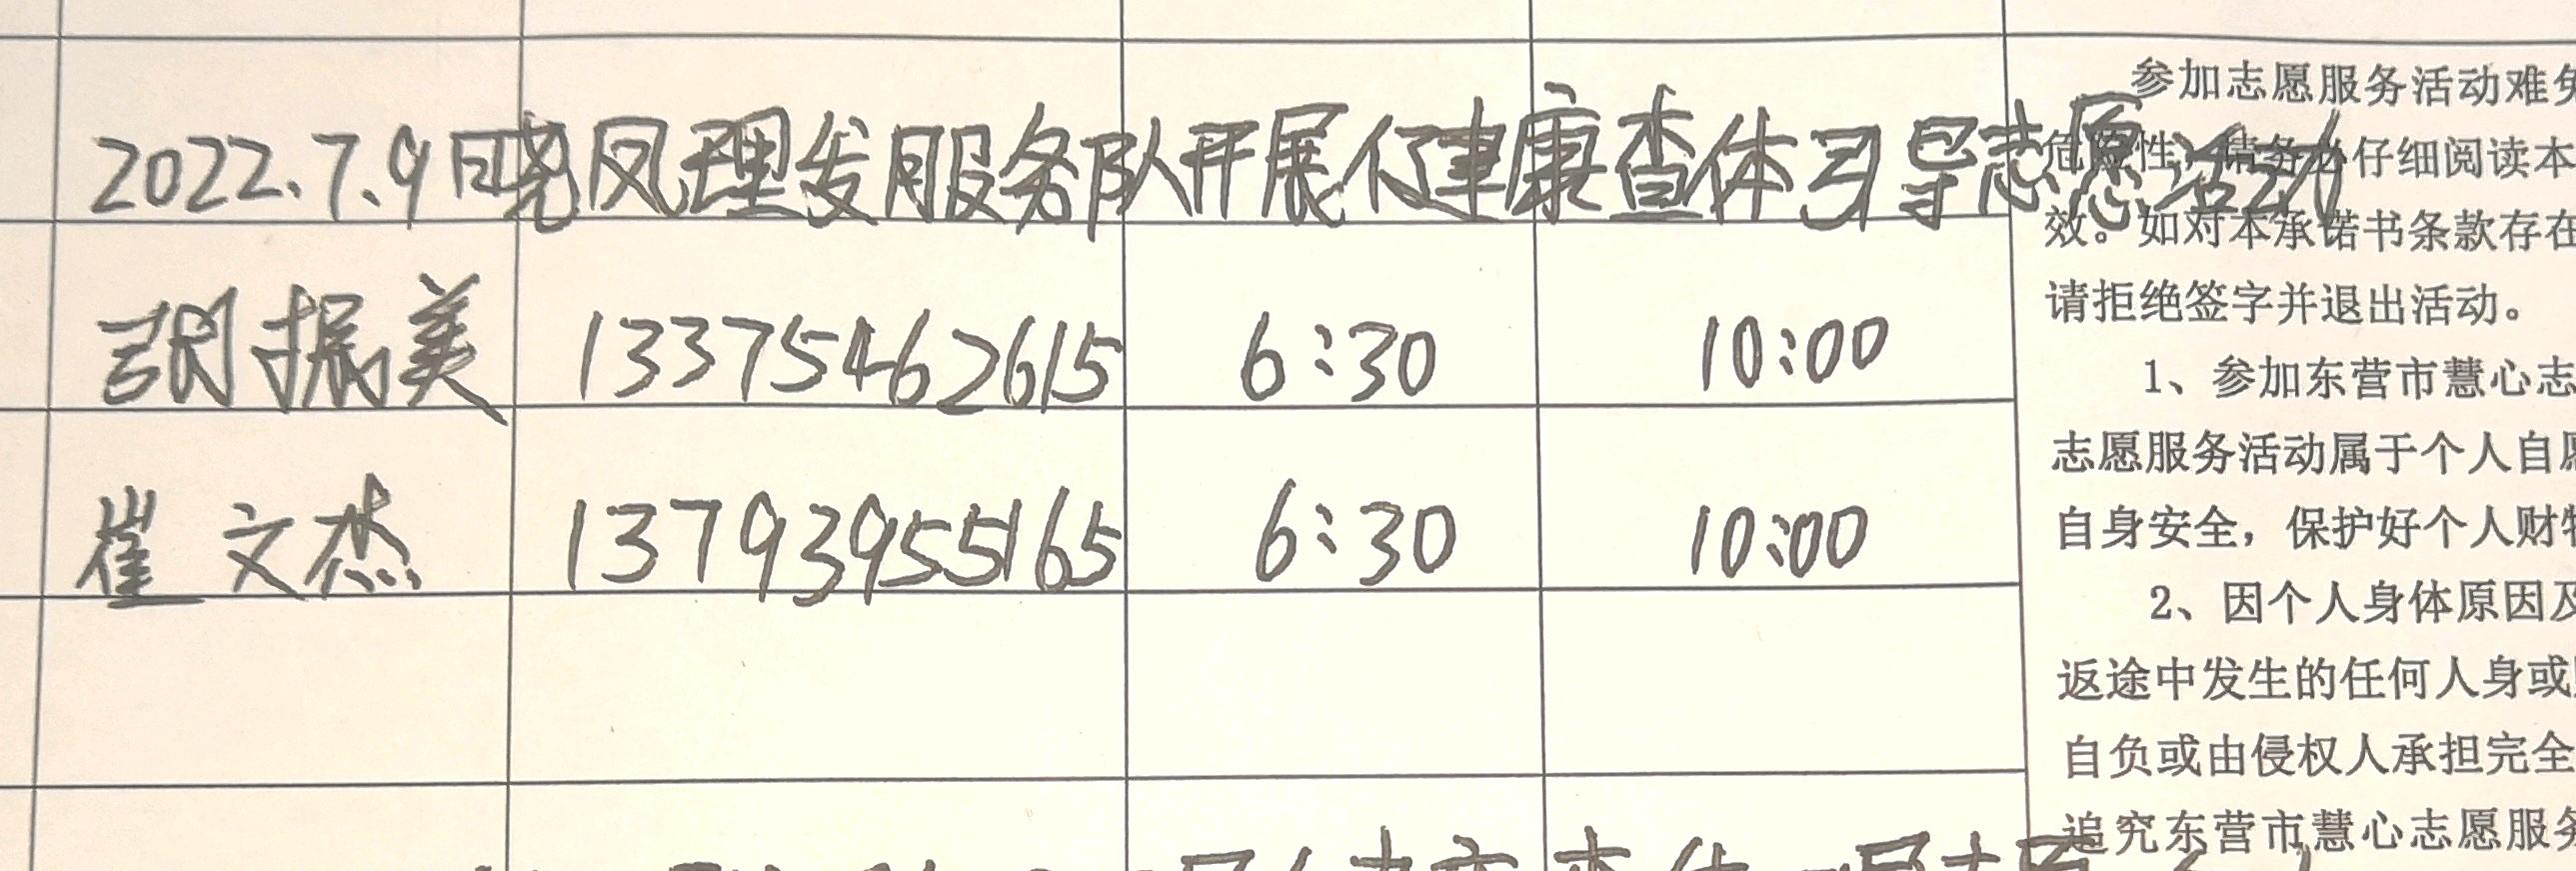 2022.7.9日晓凤理发服务队开展健康查体引导志愿活动
胡振美 13375462615 6:30 10:00
崔文杰 13793955165 6:30 10:00
参加志愿服务活动难免
危险性，请务必仔细阅读本
效。如对本承诺书条款存在
请拒绝签字并退出活动。
1、参加东营市慧心志
志愿服务活动属于个人自愿
自身安全，保护好个人财物
2、因个人身体原因及
返途中发生的任何人身或
自负或由侵权人承担完全
追究东营市慧心志愿服务